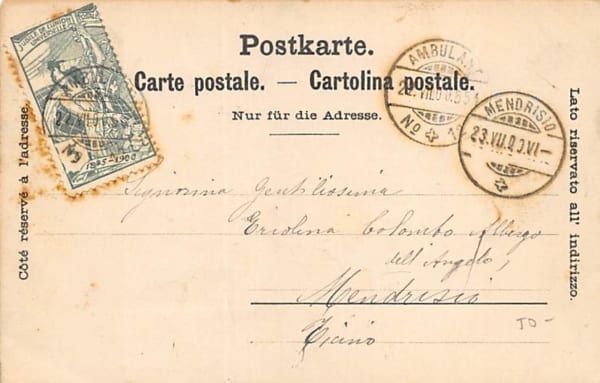 Postkarte.
Carte postale. — Cartolina postale.
Nur für die Adresse.
Côté réservé à l'adresse.
Lato riservato all' indirizzo.
JUBILÉ DE L'UNION
UNIVERSELLE
1875-1900
Nº
AMBULANT
22.VII.00
Nº 1
MENDRISIO
23.VII.00.VI-
Signorina Gentilissima
Eriolina Colombo Albergo
dell'Angelo,
Mendrisio
Ticino